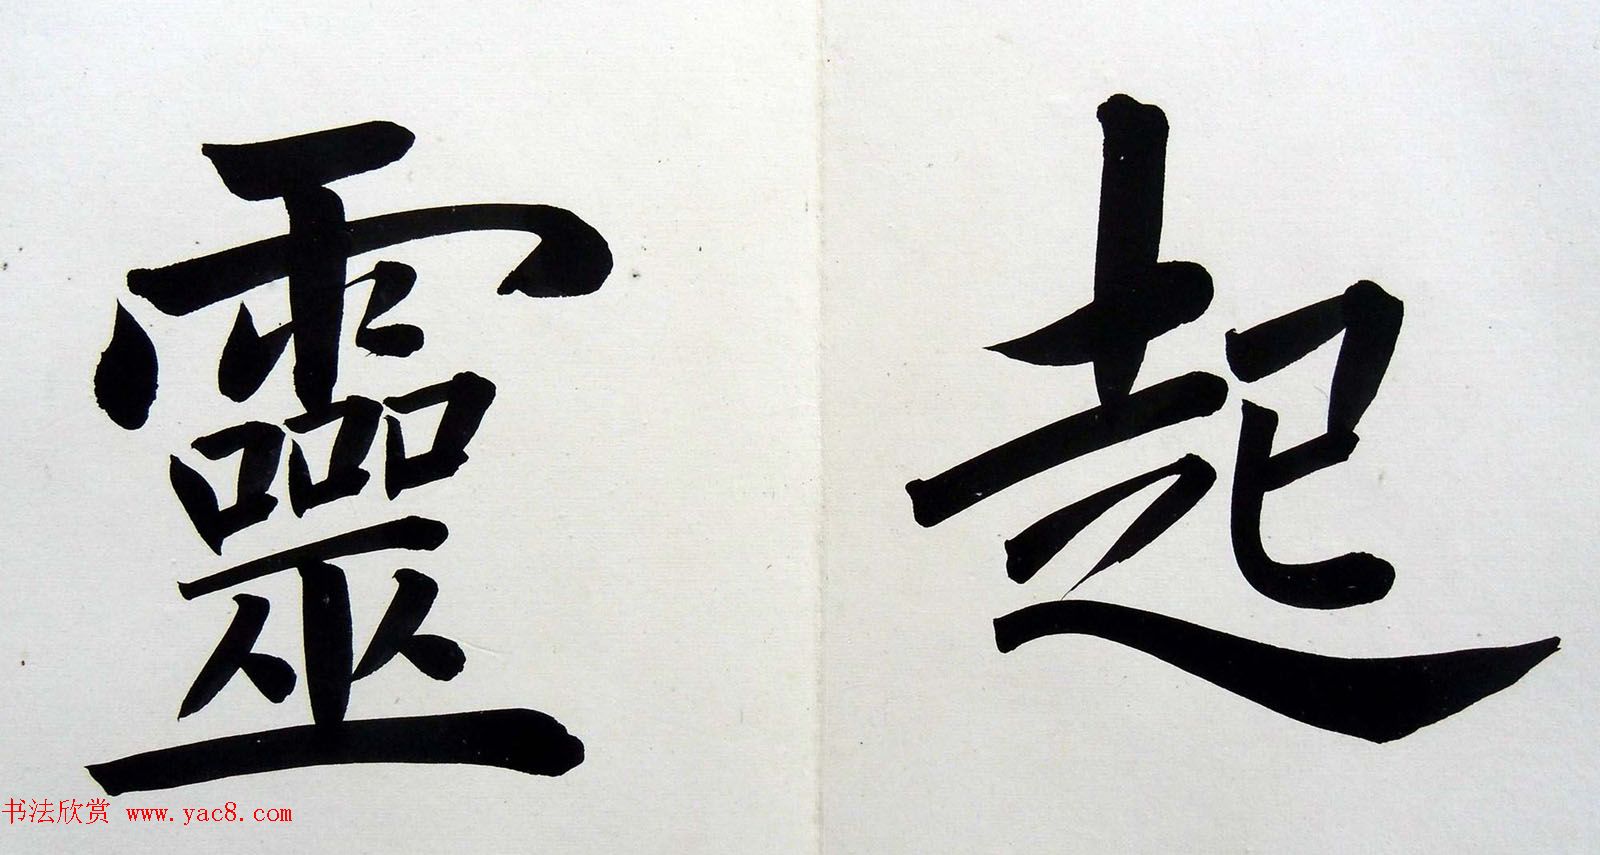 起
靈
书法欣赏 www.yac8.com